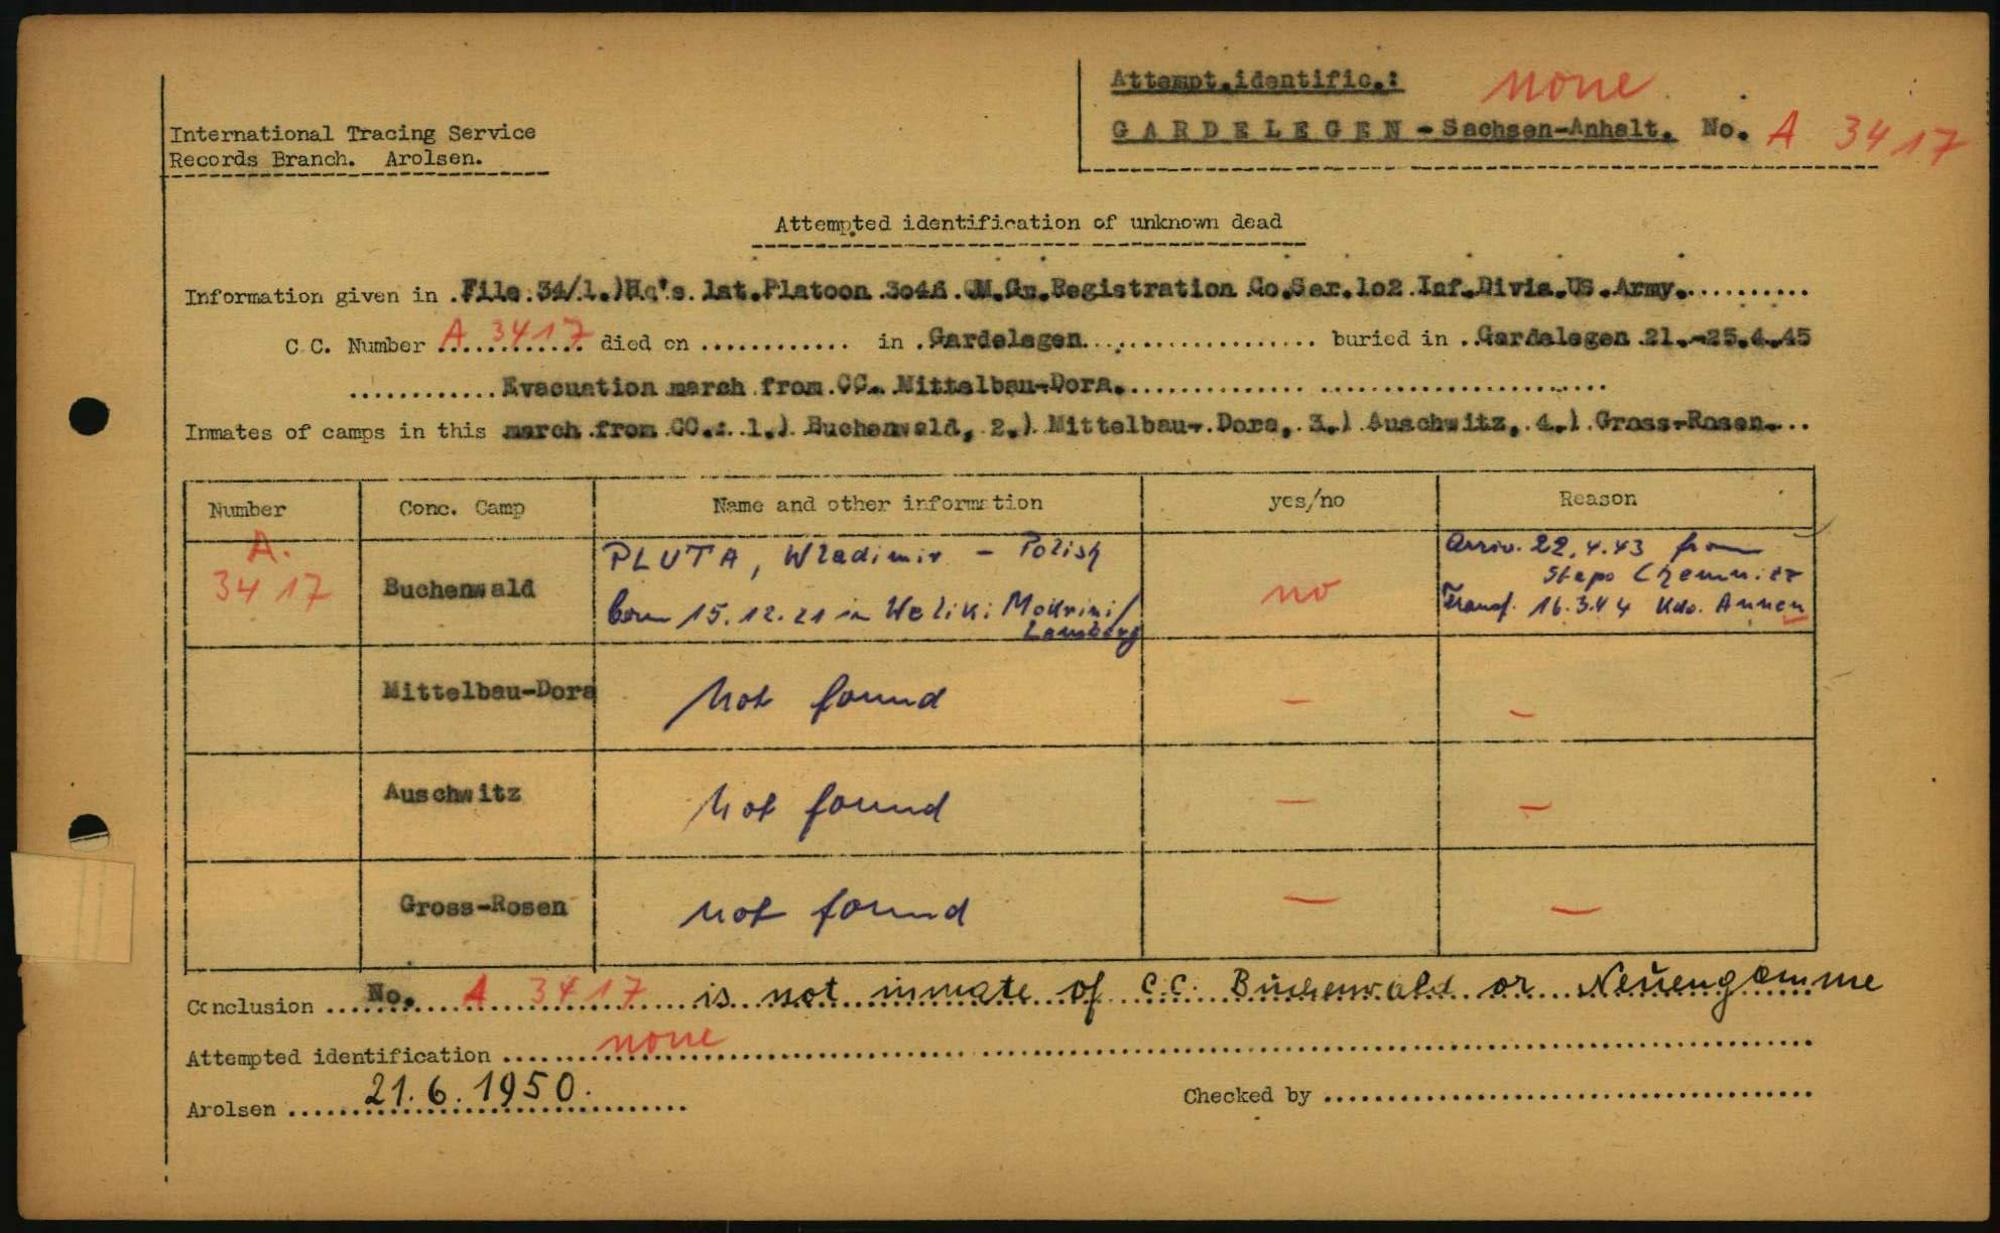 Attempt.identific.: none
GARDELEGEN - Sachsen-Anhalt. No. A 3417
International Tracing Service
Records Branch. Arolsen.
Attempted identification of unknown dead
Information given in .File 34/1.)Hq's 1st.Platoon 3046 QM.Gu.Registration Co.Ser.1o2 Inf.Divis.US.Army...........
C.C. Number A 3417 died on ............ in .Gardelegen.................... buried in ..Gardelegen 21.-25.4.45
.............Evacuation march from CC. Mittelbau-Dora.......................................
Inmates of camps in this march from CC.: 1.) Buchenwald, 2.) Mittelbau-Dora, 3.) Auschwitz, 4.) Gross-Rosen...
Number Conc. Camp Name and other information yes/no Reason
A. 3417 Buchenwald PLUTA, Wladimir - Polish
born 15.12.21 in Weliki Mokrini/
Lemberg
no
Arriv. 22.4.43 from
Stapo Chemnitz
Transf. 16.3.44 Kdo. Annen
Mittelbau-Dora not found - -
Auschwitz not found - -
Gross-Rosen not found - -
Conclusion No. A 3417 is not inmate of C.C. Buchenwald or Neuengamme
Attempted identification none
Arolsen 21.6.1950.
Checked by ..........................................